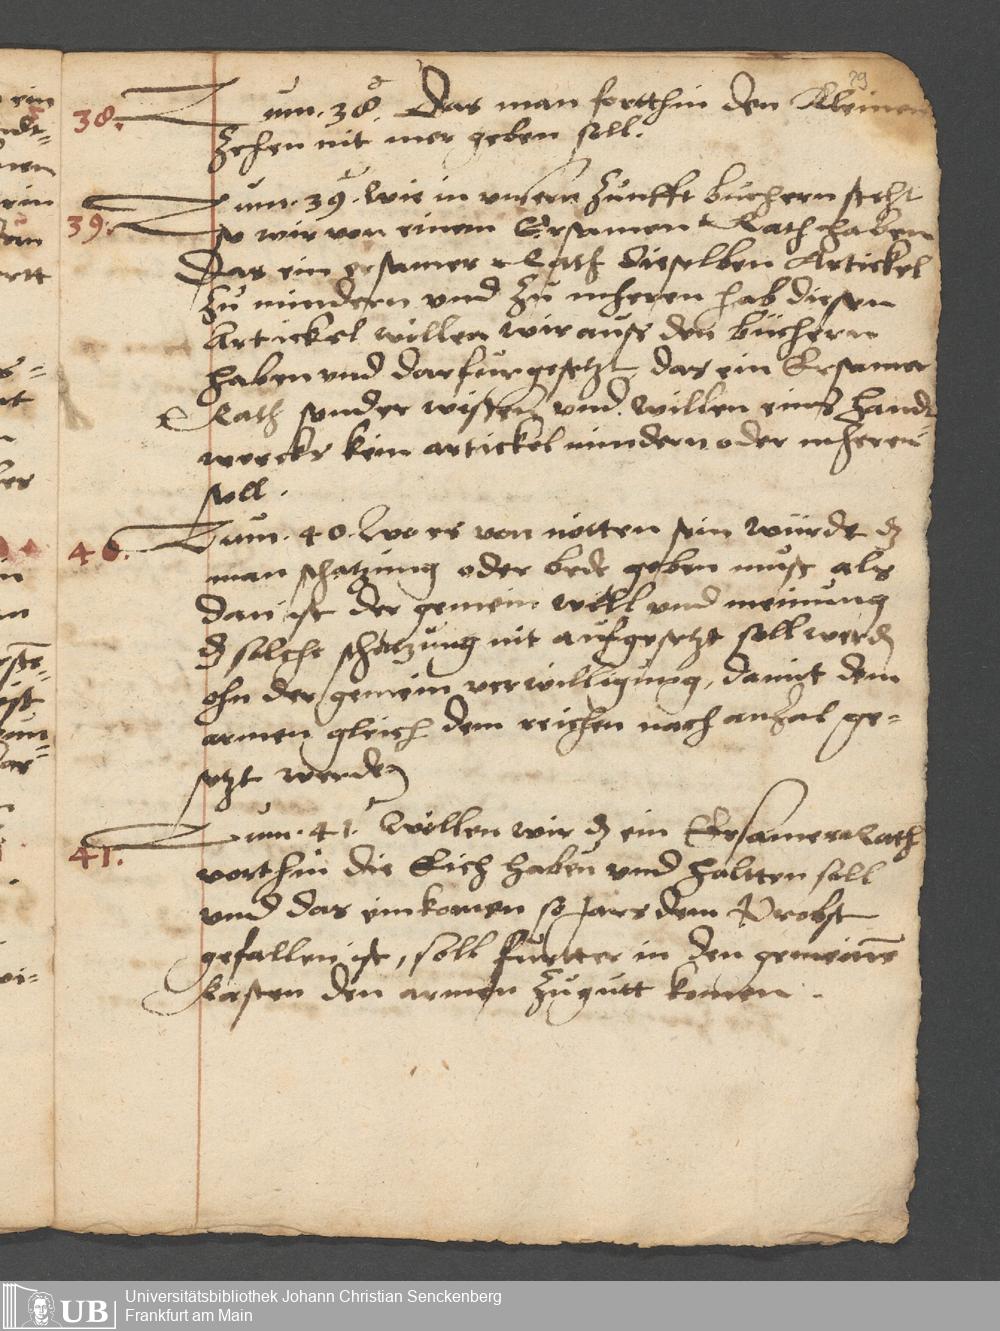 29
38. Zum. 38. Das man fortthin den Kleinen
Zehen nit mer geben soll.
39. Zum. 39. Wie in vnsern Zünfft büchern steht
so wir von einem Ersamen Rath haben
Das ein ersamer Rath dieselben Artickel
zu mindern vnd zu meheren hab diesen
Artickel willen wir auss den büchern
haben vnd darfür gesetzt, das ein Ersamer
Rath sunder wissen vnd willen eins handt
wercks kein artickel mindern oder meheren
soll.
40. Zum. 40. Wo es von nötten sein würde dz
man schatzung oder bede geben muss als
dan ist der gemein will vnd meinung
dz solche schatzung nit auffgesetzt soll werdn
ohn der gemein verwilligung, damit dem
armen gleich dem reichen nach anzal ge=
setzt werden
41. Zum. 41. Wöllen wir dz ein Ersamer Rath
vorthin die Eich haben vnd haltten soll
vnd das einkomen so Jars dem Probst
gefallen ist, soll furtter in den gemeinē
kasten den armen zu gutt komen.
UB
Universitätsbibliothek Johann Christian Senckenberg
Frankfurt am Main